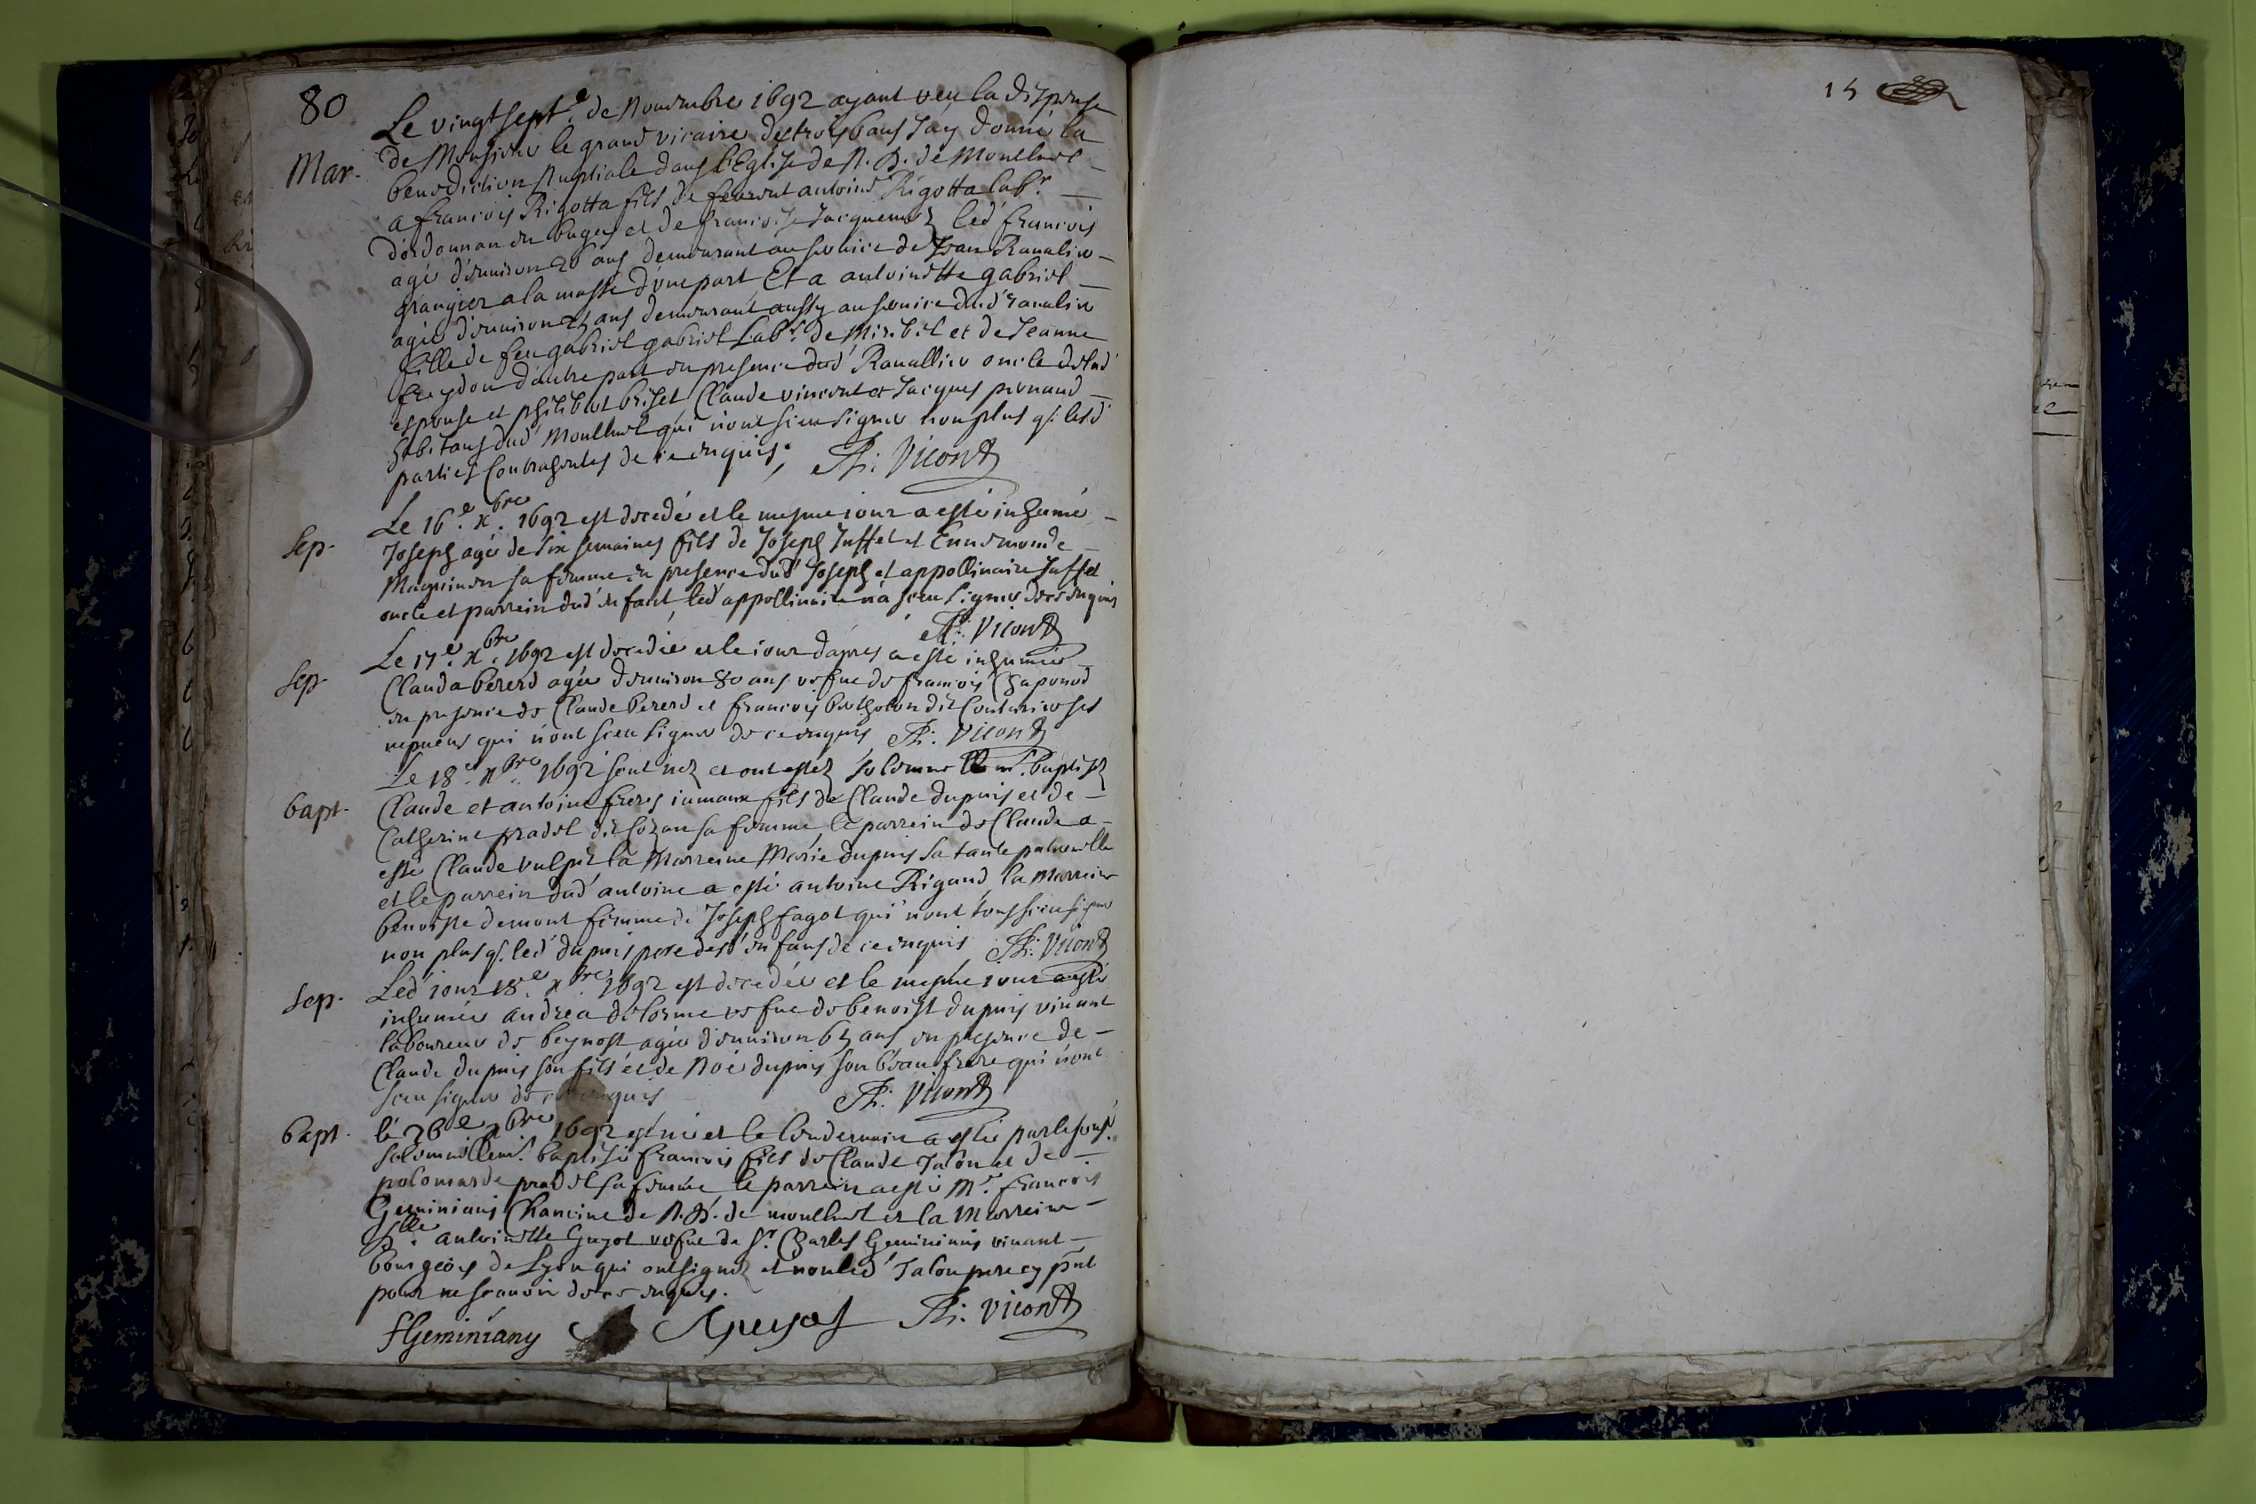 80
15
Le vingt sept.e de Novembre 1692 ayant veu la dispense
Mar. de Monsieur le grand vicaire des trois bans Jay donné la
benediction Nuptiale dans l'Eglise de N. D. de Montluel
a francois Rigotta fils de feu antoine Rigotta lab.r
d'ordonnan en bugey et de francoise Jacquemet led francois
agé d'environ 26 ans demeurant au service de Jean Ravalier
grangier a la masse d'une part Et a antoinette gabriel
agée d'environ 25 ans demeurant aussy au service dud ravalier
fille de feu gabriel gabriel Lab.r de Miribel et de Jeanne
d'autre part en presence dud Ravallier oncle de lad
espouse et philibert brisel Claude vincent et Jacques
habitans dud Montluel qui n'ont sceu signer non plus q. lesd
parties Contragentes de ce enquis. Vicont
Le 16.e x.bre 1692 est decedé et le mesme iour a esté inhumé
Sep. Joseph agé de six semaines fils de Joseph Juffet et Ennemonde
sa femme en presence dud Joseph et appollinaire Juffet
oncle et parrein dud enfant, led appollinaire n'a sceu signer de ce enquis
Vicont
Le 17.e x.bre 1692 est decedée et le iour d'apres a esté inhumée
Sep. Clauda bererd agée d'environ 80 ans vefue de francois Chaponod
en presence de Claude bererd et francois dit ses
nepueus qui n'ont sceu signer de ce enquis Vicont
Le 18.e x.bre 1692 sont nez et ont estez solemnellem.t baptisez
bapt. Claude et antoine freres iumaux fils de Claude dupuis et de
Catherine pradel dit sa femme le parrein de Claude a
esté Claude vulpet la Marreine Marie dupuis sa tante paternelle
et le parrein dud antoine a esté antoine Rigaud la Marreine
benoiste demont femme de Joseph fagot qui n'ont tous sceu signer
non plus q. led dupuis pere desd enfans de ce enquis Vicont
Sep. Led iour 18.e x.bre 1692 est decedée et le mesme iour a esté
inhumée andrea delorme vefue de benoist dupuis vivant
laboureur de beynost agée d'environ 65 ans en presence de
Claude dupuis son fils et de Noé dupuis son beau frere qui n'ont
sceu signer de ce enquis Vicont
bapt. le 26.e x.bre 1692 est né et le lendemain a esté par le
solemnellem.t baptisé francois fils de Claude Jalon et de
pradel sa femme le parrein a esté M.r francois
Geminiani Chanoine de N. D. de montluel et la Marreine
D.lle antoinette Guyot vefue de S.r Charles Geminiani vivant
bourgeois de Lyon qui ont signez et non led Jalon pere cy p̃nt
pour ne scavoir de ce enquis.
fGeminiany AGuyot Vicont